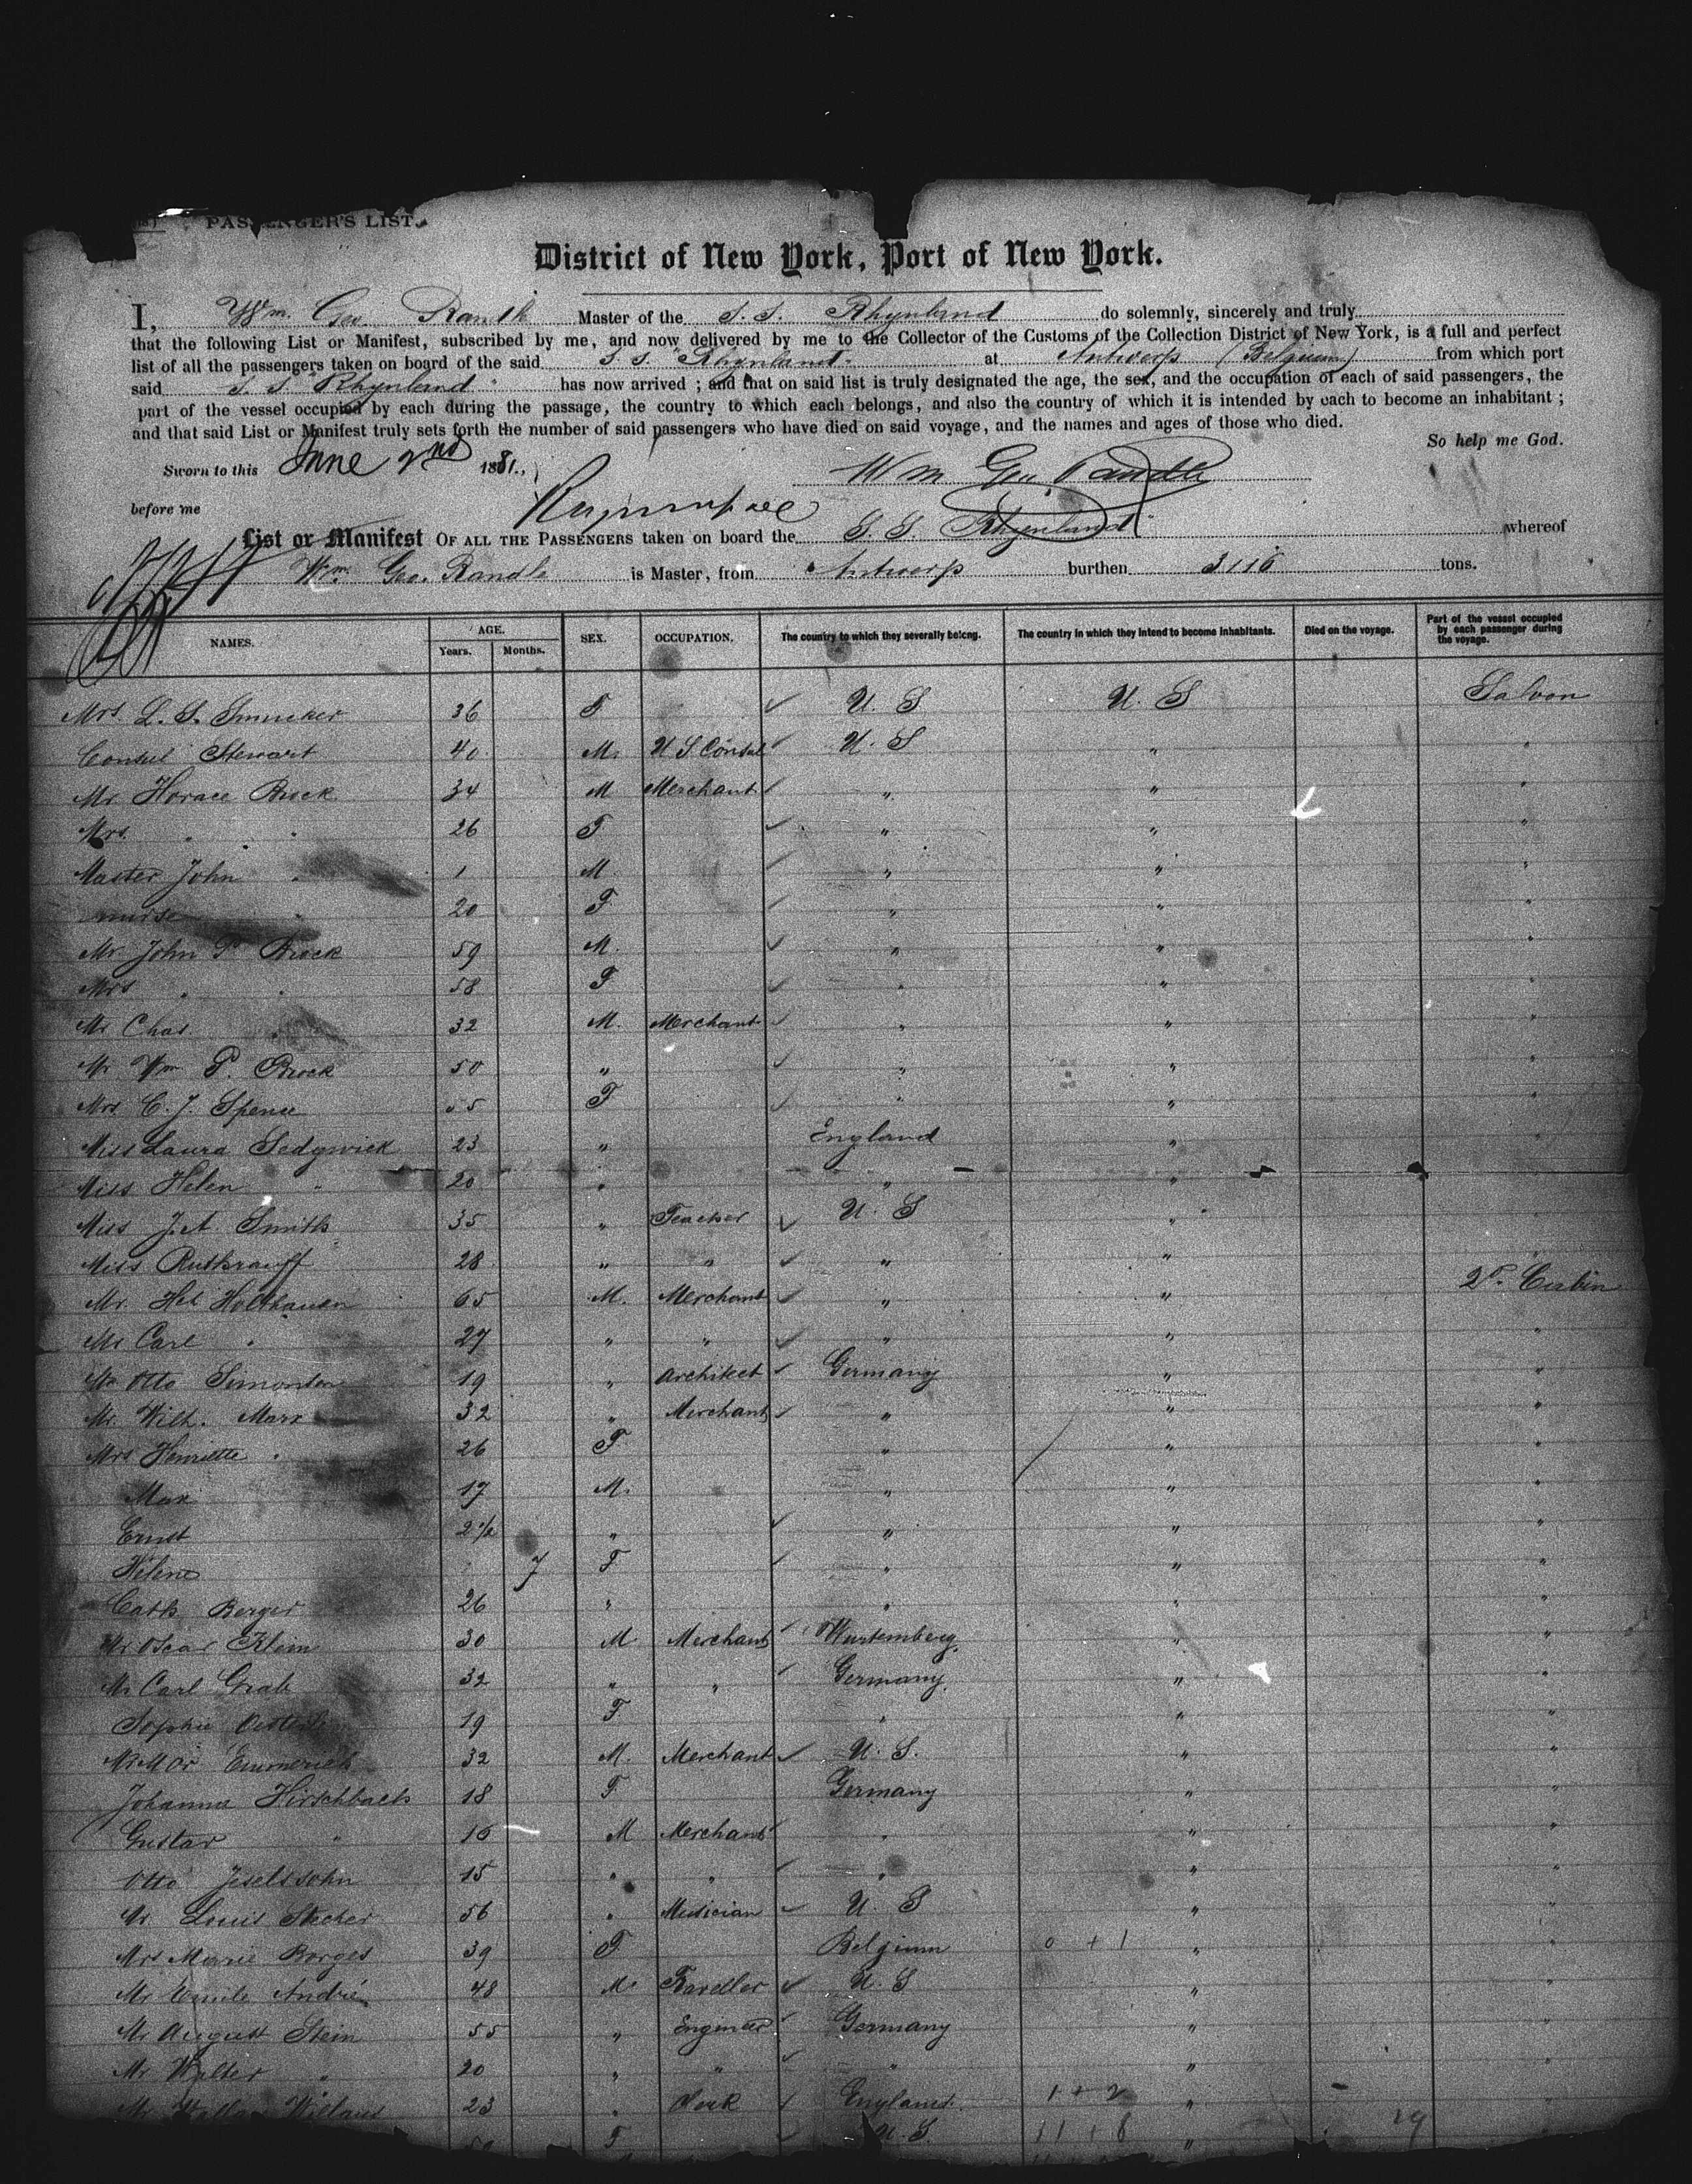 PASSENGER'S LIST.
District of New York, Port of New York.
I, Wm. Geo. Randle Master of the S. S. Rhynland do solemnly, sincerely and truly
that the following List or Manifest, subscribed by me, and now delivered by me to the Collector of the Customs of the Collection District of New York, is a full and perfect
list of all the passengers taken on board of the said S. S. "Rhynland" at Antwerp (Belgium) from which port
said S. S. "Rhynland" has now arrived ; and that on said list is truly designated the age, the sex, and the occupation of each of said passengers, the
part of the vessel occupied by each during the passage, the country to which each belongs, and also the country of which it is intended by each to become an inhabitant ;
and that said List or Manifest truly sets forth the number of said passengers who have died on said voyage, and the names and ages of those who died.
So help me God.
Sworn to this June 2nd 1881. Wm Geo. Randle
before me
List or Manifest OF ALL THE PASSENGERS taken on board the S. S. Rhynland" whereof
Wm. Geo. Randle is Master, from Antwerp burthen 3116 tons.
NAMES. AGE. Years. Months. SEX. OCCUPATION. The country to which they severally belong. The country in which they intend to become inhabitants. Died on the voyage. Part of the vessel occupied by each passenger during the voyage.
Mrs. L. S. Smucker 36 F U. S U. S Saloon
Consul Stewart 40 M. U S Consul U. S " "
Mr Horace Brock 34 M Merchant " " "
Mrs. " " 26 F " " "
Master John " 1 M " " "
nurse " 20 F " " "
Mr John P. Brock 59 M. " " "
Mrs " " 58 F " " "
Mr Chas " 32 M. Merchant " " "
Mr Wm P. Brock 50 " " " "
Mrs. C. J. Spence 55 F " " "
Miss Laura Sedgwick 23 " England " "
Miss Helen " 20 " " "
Miss J. A. Smith 35 " Teacher U. S "
Miss Ruthrauff 28 " " " "
Mr. Holthausen 65 M. Merchant " " 2d. Cabin
Mr Carl " 27 " " " " "
Mr Otto Simonton 19 " Architect Germany " "
Mr. Wilh. Marx 32 " Merchant " " "
Mrs Henriette " 26 F " " "
Max 17 M. " " "
Ernst 2 1/2 " " " "
Helene 7 F " " "
Cath Berger 26 " " " "
Mr Oscar Klein 30 M Merchant Wurtemberg " "
Mr Carl Grab 32 " " Germany " "
Sophie 19 F " " "
Emmerich 32 M. Merchant U. S. " "
Johanna Hirschbach 18 F Germany " "
Gustav " 16 M Merchant " " "
Otto Jeselssohn 15 " " " " "
Mr Louis Stecher 56 " Musician U. S " "
Mrs Marie Borges 39 F Belgium 0 + 1 " "
Mr Emile André 48 M Traveller U. S " "
Mr August Stein 55 " Engineer Germany " "
Mr Walter " 20 " " " " "
Mr 23 " Clerk England. 1 + 2 "
F U. S. 11 + 8 " 19